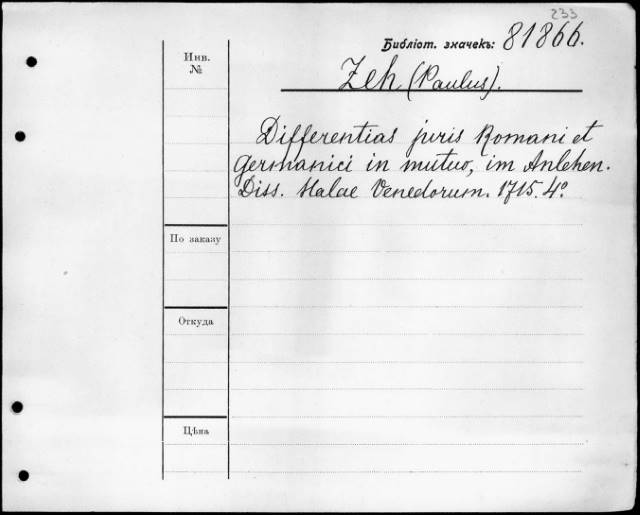 233
Библіот. значекъ: 81866.
Инв.
№
Zeh (Paulus).
Differentias juris Romani et
germanici in mutuo, im Anlehen.
Diss. Halae Venedorum. 1715. 4º
По заказу
Откуда
Цѣна